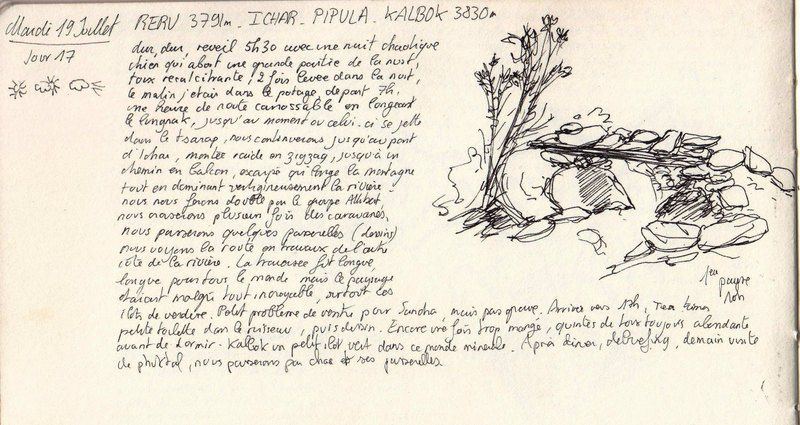 Mardi 19 Juillet
Jour 17
RERU 3791m - ICHAR - PIPULA - KALBOK 3830m
dur, dur, reveil 5h30 avec une nuit chaotique
chien qui aboit une grande partie de la nuit,
toux recalcitrante ! 2 fois levée dans la nuit,
le matin j'etais dans le potage, depart 7h.
une heure de route carrossable en longeant
le lungnak, jusqu'au moment ou celui-ci se jette
dans le tsarap, nous continuerons jusqu'au pont
d'Ichar, montée raide en zigzag, jusqu'à un
chemin en balcon, escarpé qui longe la montagne
tout en dominant vertigineusement la rivière.
nous nous ferons doublé par le groupe Allibert,
nous croiserons plusieurs fois des caravanes.
nous passerons quelques passerelles (dessins)
nous voyons la route en travaux de l'autre
côté de la rivière. La traversée fut longue,
longue pour tous le monde mais le paysage
etaient malgré tout incroyable, surtout ces
ilots de verdure. Petit problème de ventre pour, mais pas grave. Arrivée vers, Tea time
petite toilette dans le ruisseau, puis dessin. Encore une fois trop mangé, quintes de toux toujours abondante
avant de dormir. Kalbok un petit ilot vert dans ce monde minerale. Après diner, demain visite
de phuktal, nous passerons par char et ses passerelles.
pause
10h